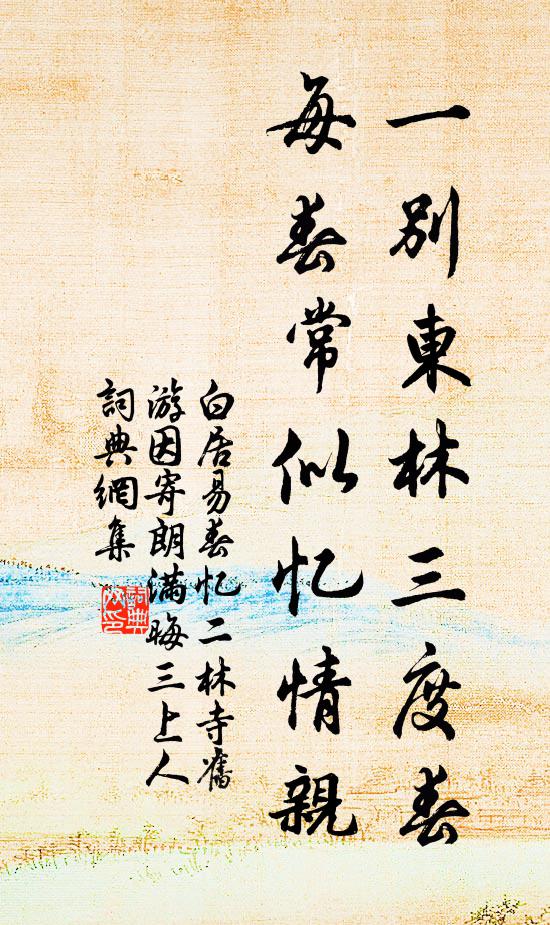 一別東林三度春
每春常似忆情親
白居易春忆二林寺舊
游因寄朗滿晦三上人
詞典網集